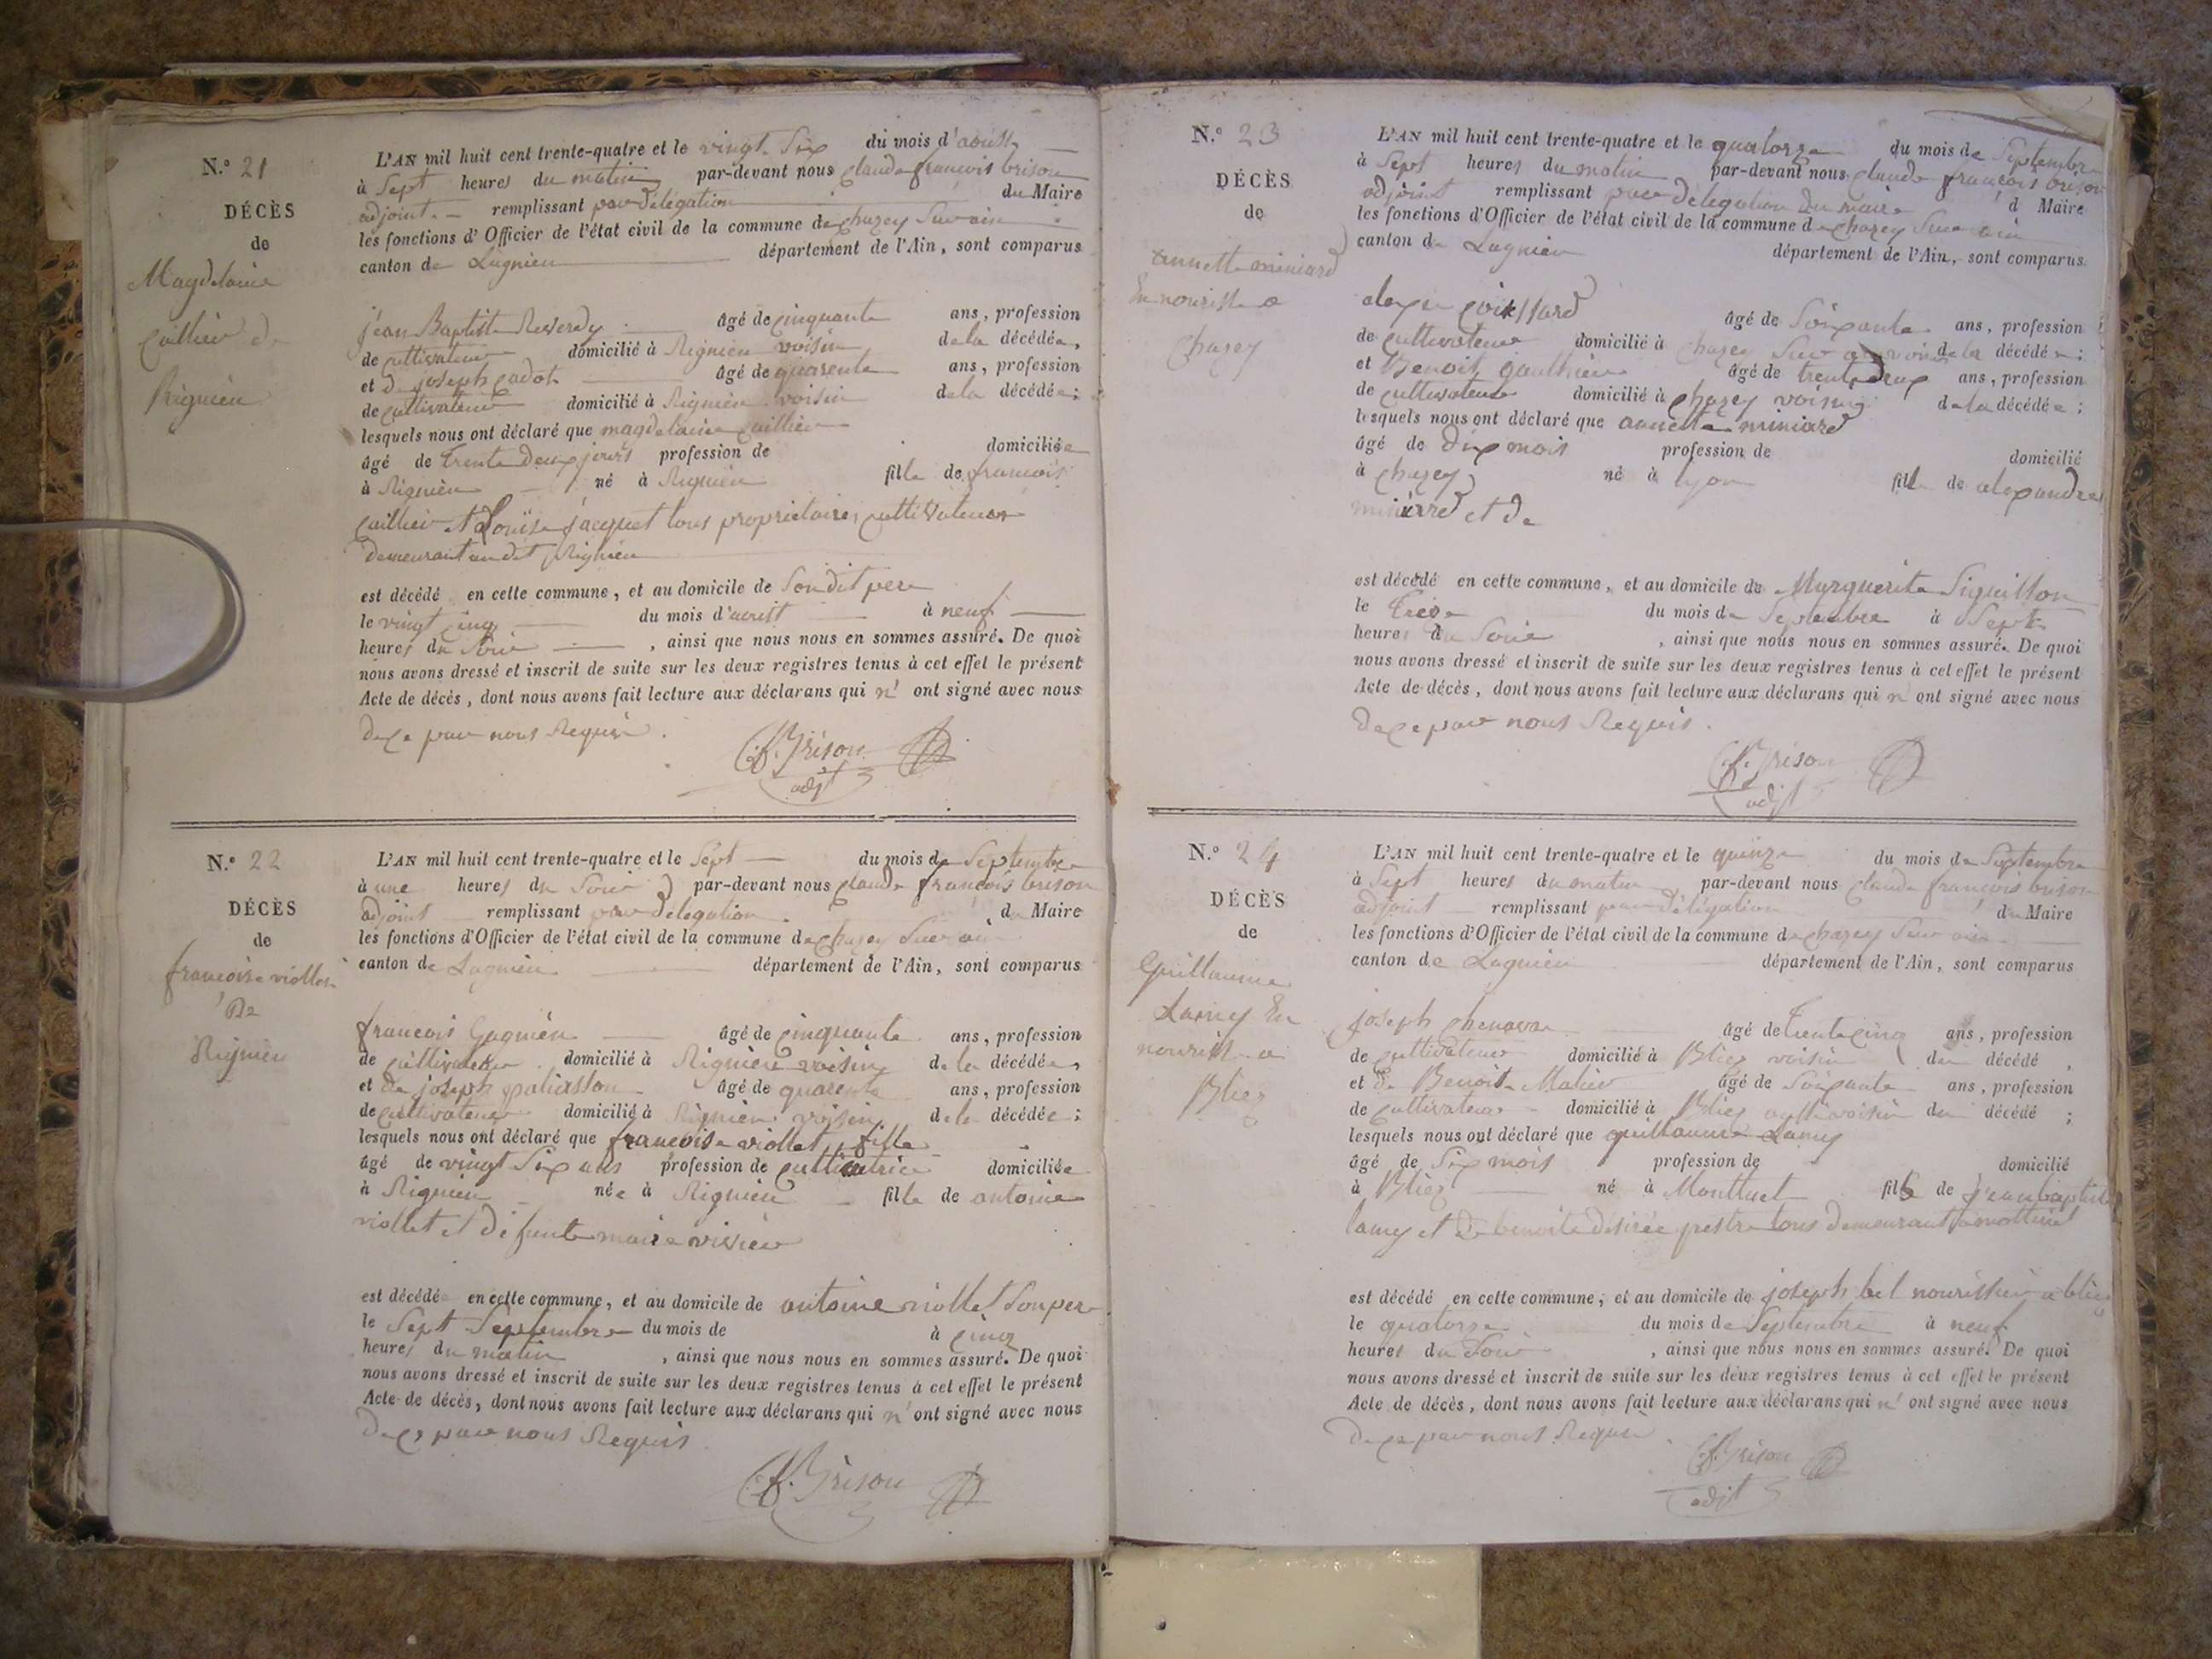 N.° 21
DÉCÈS
de
Magdelaine
Caillier de
Rignieu
L'AN mil huit cent trente-quatre et le vingt Six du mois d'aoust
à Sept heures du matin par-devant nous claude francois brison
adjoint remplissant par délégation du Maire
les fonctions d'Officier de l'état civil de la commune de chazey Sur ain
canton de Lagnieu département de l'Ain, sont comparus
jean Baptiste Reverdy âgé de cinquante ans, profession
de cultivateur domicilié à Rignieu voisin de la décédée,
et d joseph cadot âgé de quarente ans, profession
de cultivateur domicilié à Rignieu voisin de la décédée;
lesquels nous ont déclaré que magdelaine caillier
âgé de trente deux jours profession de domiciliée
à Rignieu né à Rignieu fille de francois
caillier et Louise jacquet tous propriétaires cultivateurs
demeurant au dit Rignieu
est décédé en cette commune, et au domicile de Son dit pere
le vingt cinq du mois d'aoust à neuf
heures du Soir , ainsi que nous nous en sommes assuré. De quoi
nous avons dressé et inscrit de suite sur les deux registres tenus à cet effet le présent
Acte de décès, dont nous avons fait lecture aux déclarans qui n' ont signé avec nous
de ce par nous Requis.
C.f. Brison
adjt
N.° 22
DÉCÈS
de
francoise viollet
De
Rignieu
L'AN mil huit cent trente-quatre et le Sept du mois de Septembre
à une heures du Soir par-devant nous claude françois brison
adjoint remplissant par délégation du Maire
les fonctions d'Officier de l'état civil de la commune de chazey Sur ain
canton de Lagnieu département de l'Ain, sont comparus
francois Gagnieu âgé de cinquante ans, profession
de cultivateur domicilié à Rignieu voisin de la décédée,
et de joseph âgé de quarente ans, profession
de cultivateur domicilié à Rignieu voisin de la décédée;
lesquels nous ont déclaré que françoise viollet fille
âgé de vingt Six ans profession de cultivatrice domiciliée
à Rignieu née à Rignieu fille de antoine
viollet et défunte marie
est décédée en cette commune, et au domicile de antoine viollet Son pere
le Sept Septembre du mois de à cinq
heures du matin , ainsi que nous nous en sommes assuré. De quoi
nous avons dressé et inscrit de suite sur les deux registres tenus à cet effet le présent
Acte de décès, dont nous avons fait lecture aux déclarans qui n' ont signé avec nous
de ce par nous Requis
C.f. Brison
N.° 23
DÉCÈS
de
annette miniard
En nourisse a
Chazey
L'AN mil huit cent trente-quatre et le quatorze du mois de Septembre
à Sept heures du matin par-devant nous claude françois brison
adjoint remplissant par délégation du maire d Maire
les fonctions d'Officier de l'état civil de la commune de chazey Sur ain
canton de Lagnieu département de l'Ain, sont comparus
âgé de Soixante ans, profession
de cultivateur domicilié à chazey Sur ain voisin de la décédée;
et Benoit gauthier âgé de trente deux ans, profession
de cultivateur domicilié à chazey voisin de la décédée;
lesquels nous ont déclaré que annette miniard
âgé de dix mois profession de domicilié
à chazey né à lyon fille de alexandre
miniard et de
est décédé en cette commune, et au domicile de Marguerite Siguillon
le treize du mois de Septembre à Sept
heures du Soir , ainsi que nous nous en sommes assuré. De quoi
nous avons dressé et inscrit de suite sur les deux registres tenus à cet effet le présent
Acte de décès, dont nous avons fait lecture aux déclarans qui n' ont signé avec nous
de ce par nous Requis.
C.f. Brison
adjt
N.° 24
DÉCÈS
de
Guillaume
Lamy En
nourisse a
Bliez
L'AN mil huit cent trente-quatre et le quinze du mois de Septembre
à Sept heures du matin par-devant nous claude françois brison
adjoint remplissant par délégation du Maire
les fonctions d'Officier de l'état civil de la commune de chazey Sur ain
canton de Lagnieu département de l'Ain, sont comparus
joseph chenavar âgé de trente cinq ans, profession
de cultivateur domicilié à Bliez voisin du décédé,
et de Benoit Matier âgé de Soixante ans, profession
de cultivateur domicilié à Bliez aussi voisin du décédé;
lesquels nous ont déclaré que guillaume Lamy
âgé de Six mois profession de domicilié
à Bliez né à Montluet fils de jean baptiste
lamy et de benoite désirée prestre tous demeurant a mottluet
est décédé en cette commune, et au domicile de joseph bel nourissier a bliez
le quatorze du mois de Septembre à neuf
heures du Soir , ainsi que nous nous en sommes assuré. De quoi
nous avons dressé et inscrit de suite sur les deux registres tenus à cet effet le présent
Acte de décès, dont nous avons fait lecture aux déclarans qui n' ont signé avec nous
de ce par nous Requis
C.f. Brison
adjt